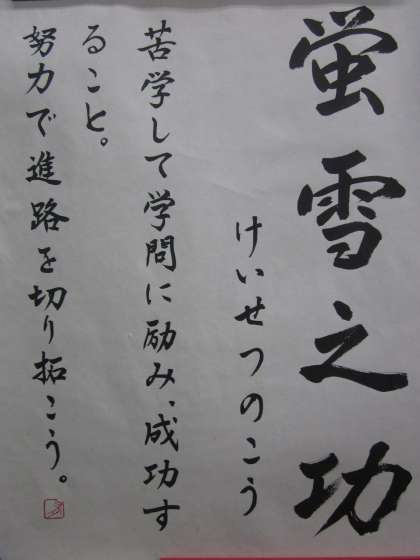 蛍雪之功
けいせつのこう
苦学して学問に励み、成功す
ること。
努力で進路を切り拓こう。